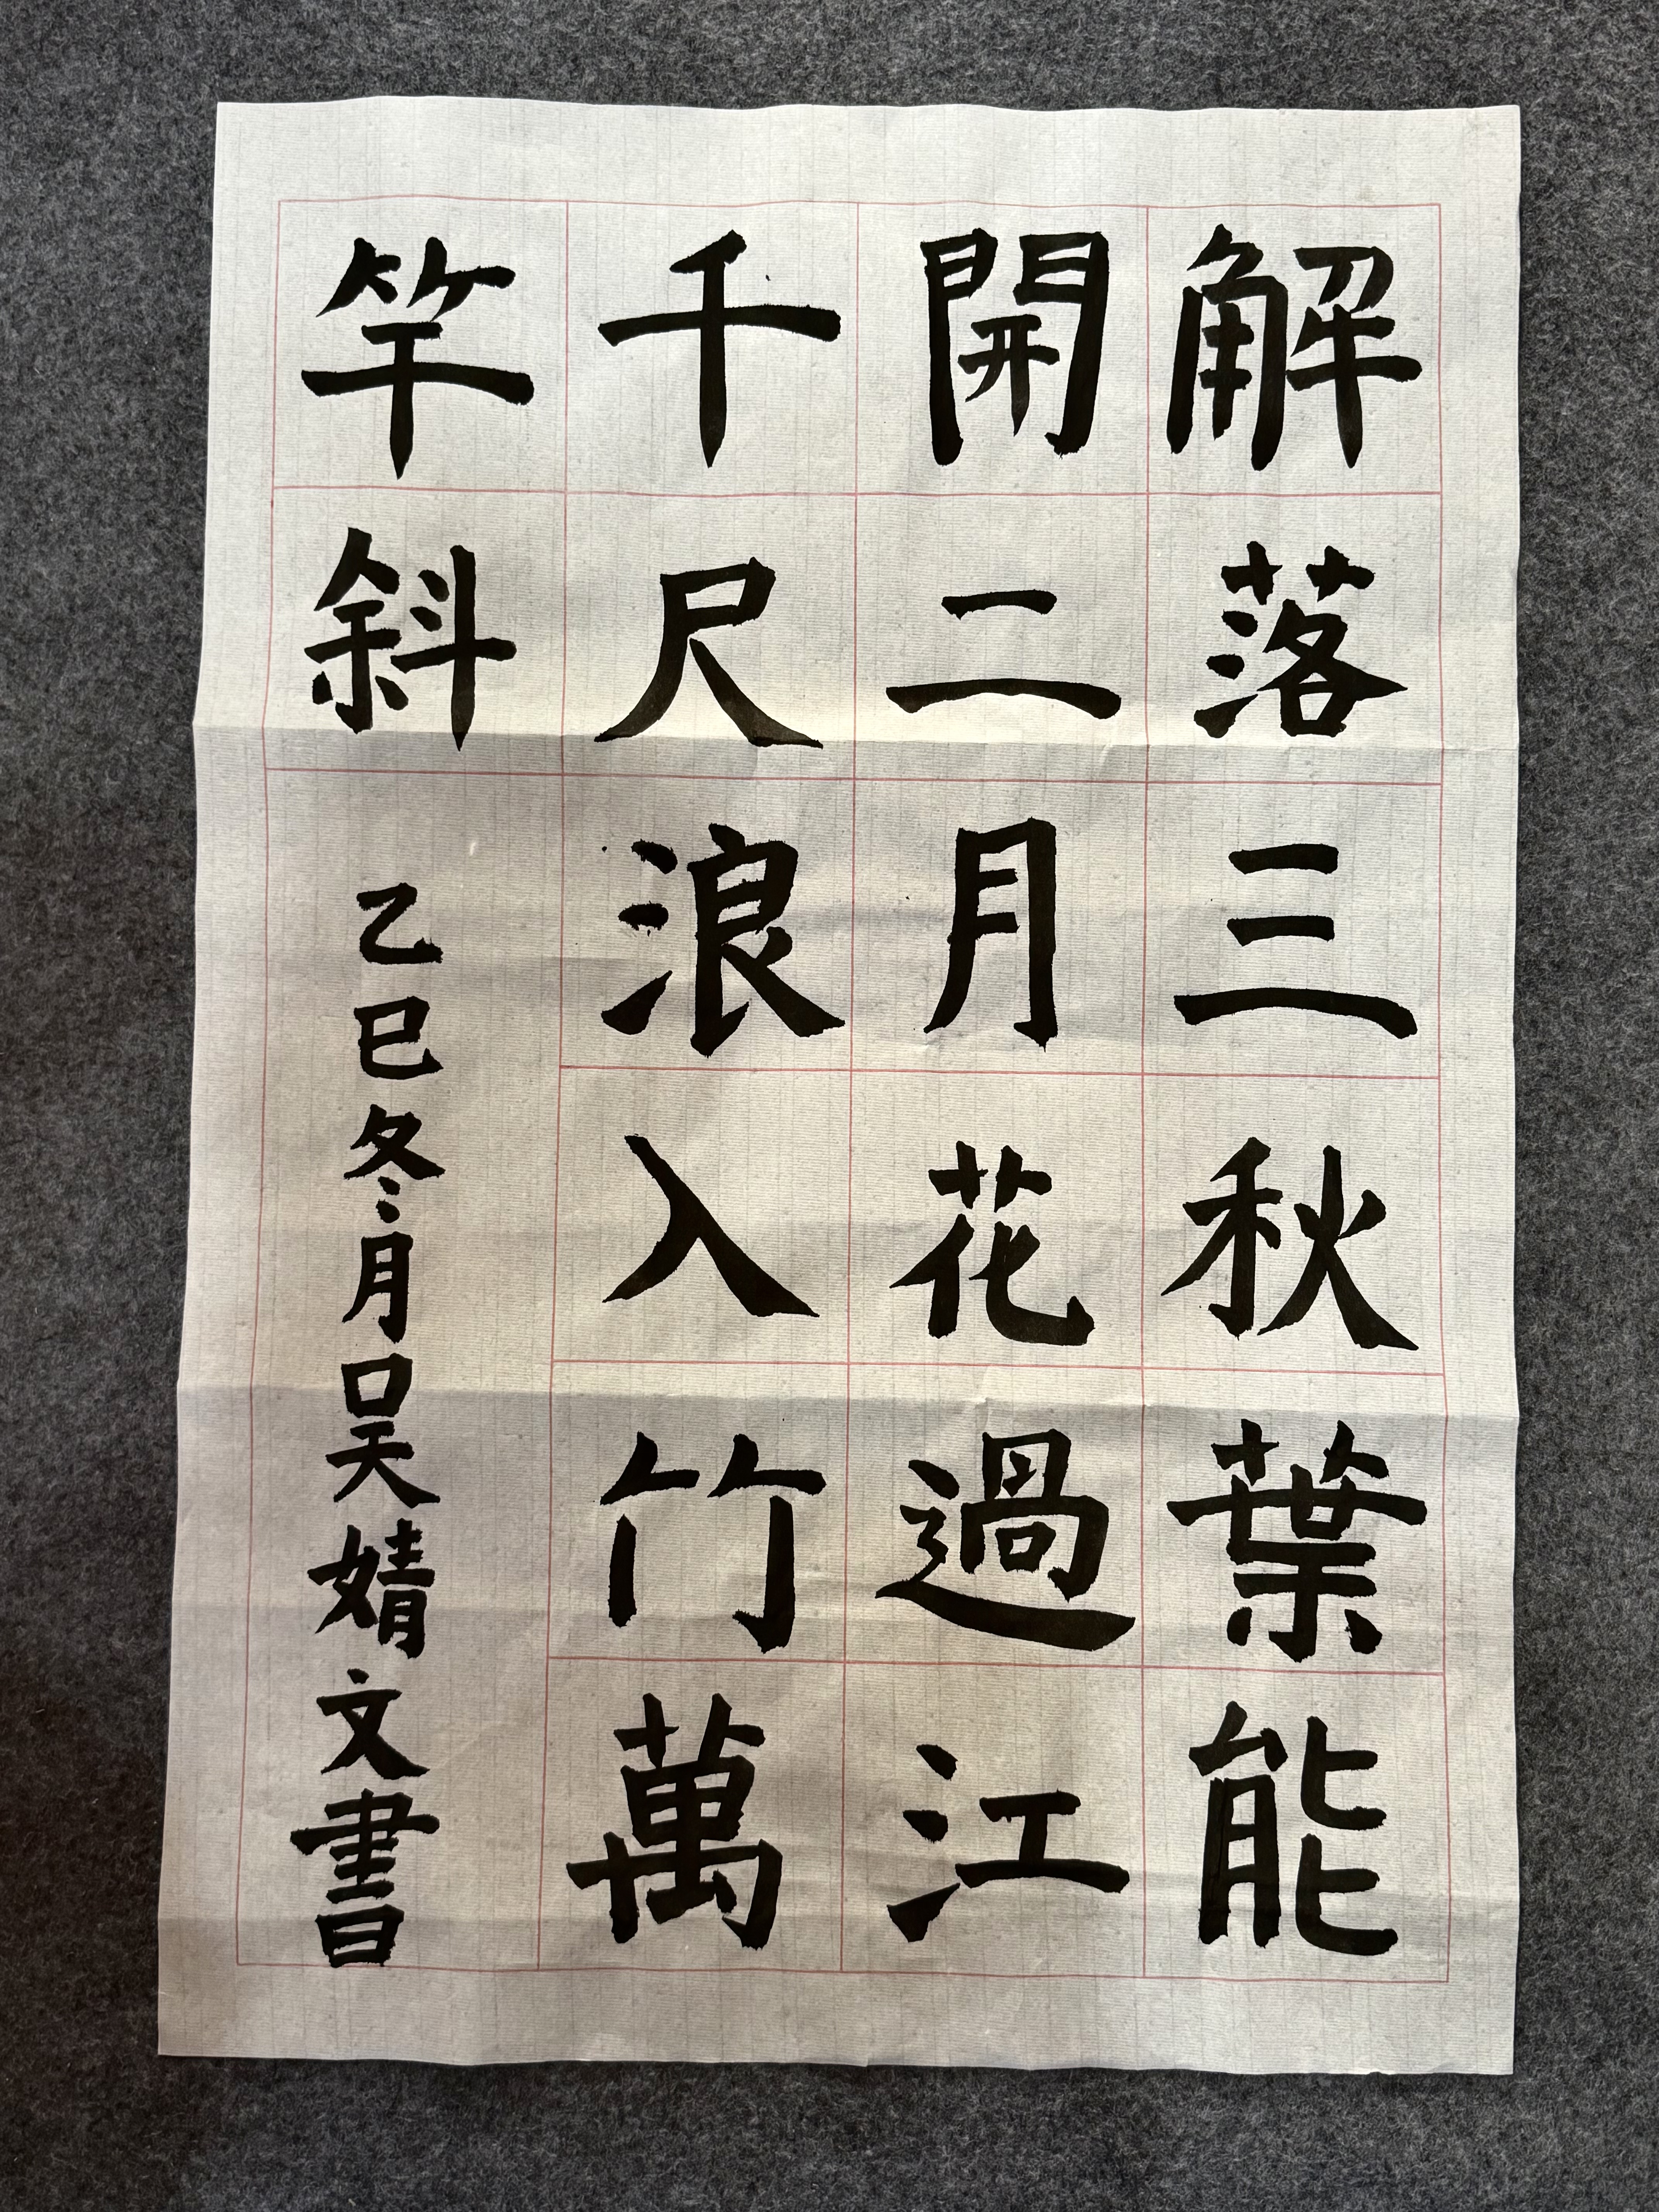 解落三秋葉能
開二月花過江
千尺浪入竹萬
竿斜
乙巳冬月吴婧文書